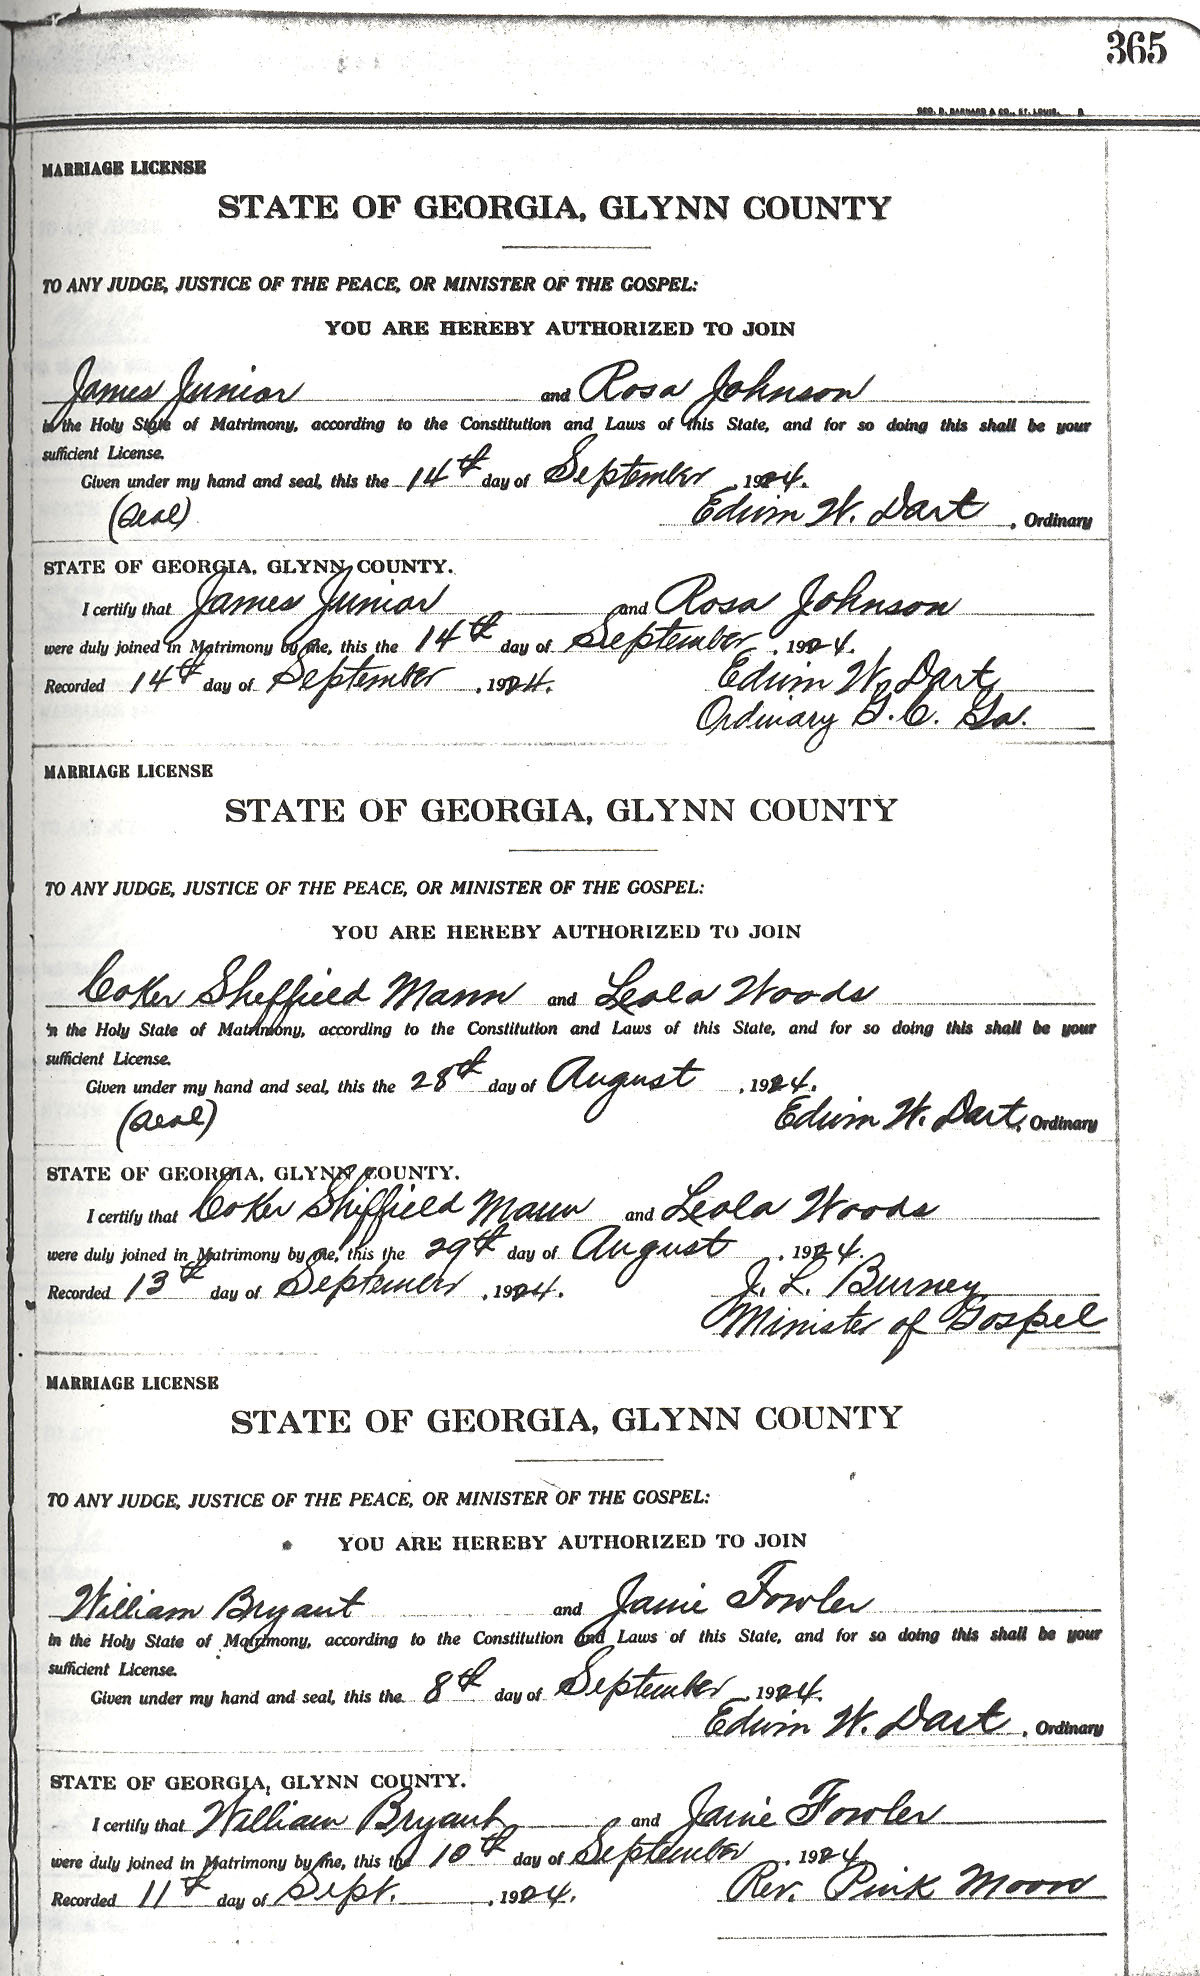 365
GEO. D. BARNARD & CO., ST. LOUIS. B
MARRIAGE LICENSE
STATE OF GEORGIA, GLYNN COUNTY
TO ANY JUDGE, JUSTICE OF THE PEACE, OR MINISTER OF THE GOSPEL:
YOU ARE HEREBY AUTHORIZED TO JOIN
James Junior and Rosa Johnson
in the Holy State of Matrimony, according to the Constitution and Laws of this State, and for so doing this shall be your
sufficient License.
Given under my hand and seal, this the 14th day of September, 1924.
(Seal) Edwin W. Dart, Ordinary
STATE OF GEORGIA, GLYNN COUNTY.
I certify that James Junior and Rosa Johnson
were duly joined in Matrimony by me, this the 14th day of September, 1924.
Recorded 14th day of September, 1924. Edwin W. Dart
Ordinary G. C. Ga.
MARRIAGE LICENSE
STATE OF GEORGIA, GLYNN COUNTY
TO ANY JUDGE, JUSTICE OF THE PEACE, OR MINISTER OF THE GOSPEL:
YOU ARE HEREBY AUTHORIZED TO JOIN
Coker Sheffield Mann and Leola Woods
in the Holy State of Matrimony, according to the Constitution and Laws of this State, and for so doing this shall be your
sufficient License.
Given under my hand and seal, this the 28th day of August, 1924.
(Seal) Edwin W. Dart, Ordinary
STATE OF GEORGIA, GLYNN COUNTY.
I certify that Coker Sheffield Mann and Leola Woods
were duly joined in Matrimony by me, this the 29th day of August, 1924.
Recorded 13th day of September, 1924. J. L. Burney
Minister of Gospel
MARRIAGE LICENSE
STATE OF GEORGIA, GLYNN COUNTY
TO ANY JUDGE, JUSTICE OF THE PEACE, OR MINISTER OF THE GOSPEL:
YOU ARE HEREBY AUTHORIZED TO JOIN
William Bryant and Janie Fowler
in the Holy State of Matrimony, according to the Constitution and Laws of this State, and for so doing this shall be your
sufficient License.
Given under my hand and seal, this the 8th day of September, 1924.
Edwin W. Dart, Ordinary
STATE OF GEORGIA, GLYNN COUNTY.
I certify that William Bryant and Janie Fowler
were duly joined in Matrimony by me, this the 10th day of September, 1924
Recorded 11th day of Sept., 1924. Rev. Pink Moore